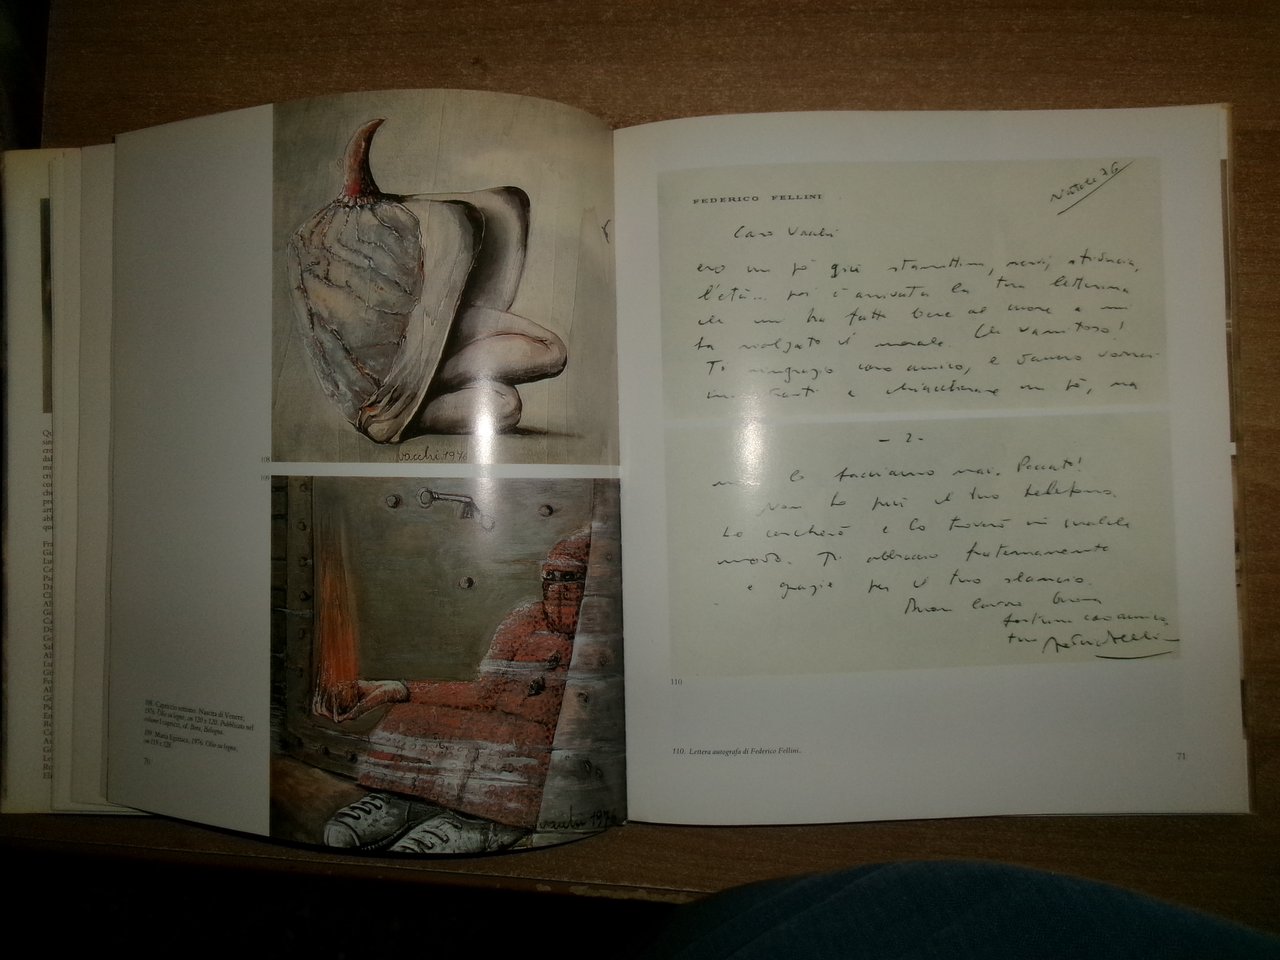 vacchi 1976
vacchi 1976
108. Capriccio settimo. Nascita di Venere,
1976. Olio su legno, cm 120 x 120. Pubblicato nel
volume I capricci, ed. Bora, Bologna.
109. Maria Egiziaca, 1976. Olio su legno,
cm 119 x 128.
70
108
109
FEDERICO FELLINI
Natale 76
Caro Vacchi
ero un pò giù stamattina,
l'età... poi è arrivata la tua letterina
che mi ha fatto bene al cuore e mi
ha rialzato il morale. Che vanitoso!
Ti ringrazio caro amico, e davvero vorrei
e chiacchierare un pò, ma
- 2 -
non lo facciamo mai. Peccato!
Non ho più il tuo telefono.
Lo cercherò e lo troverò in qualche
modo. Ti abbraccio fraternamente
e grazie per il tuo slancio.
Buon lavoro buona
fortuna caro amico
tuo
110
110. Lettera autografa di Federico Fellini.
71